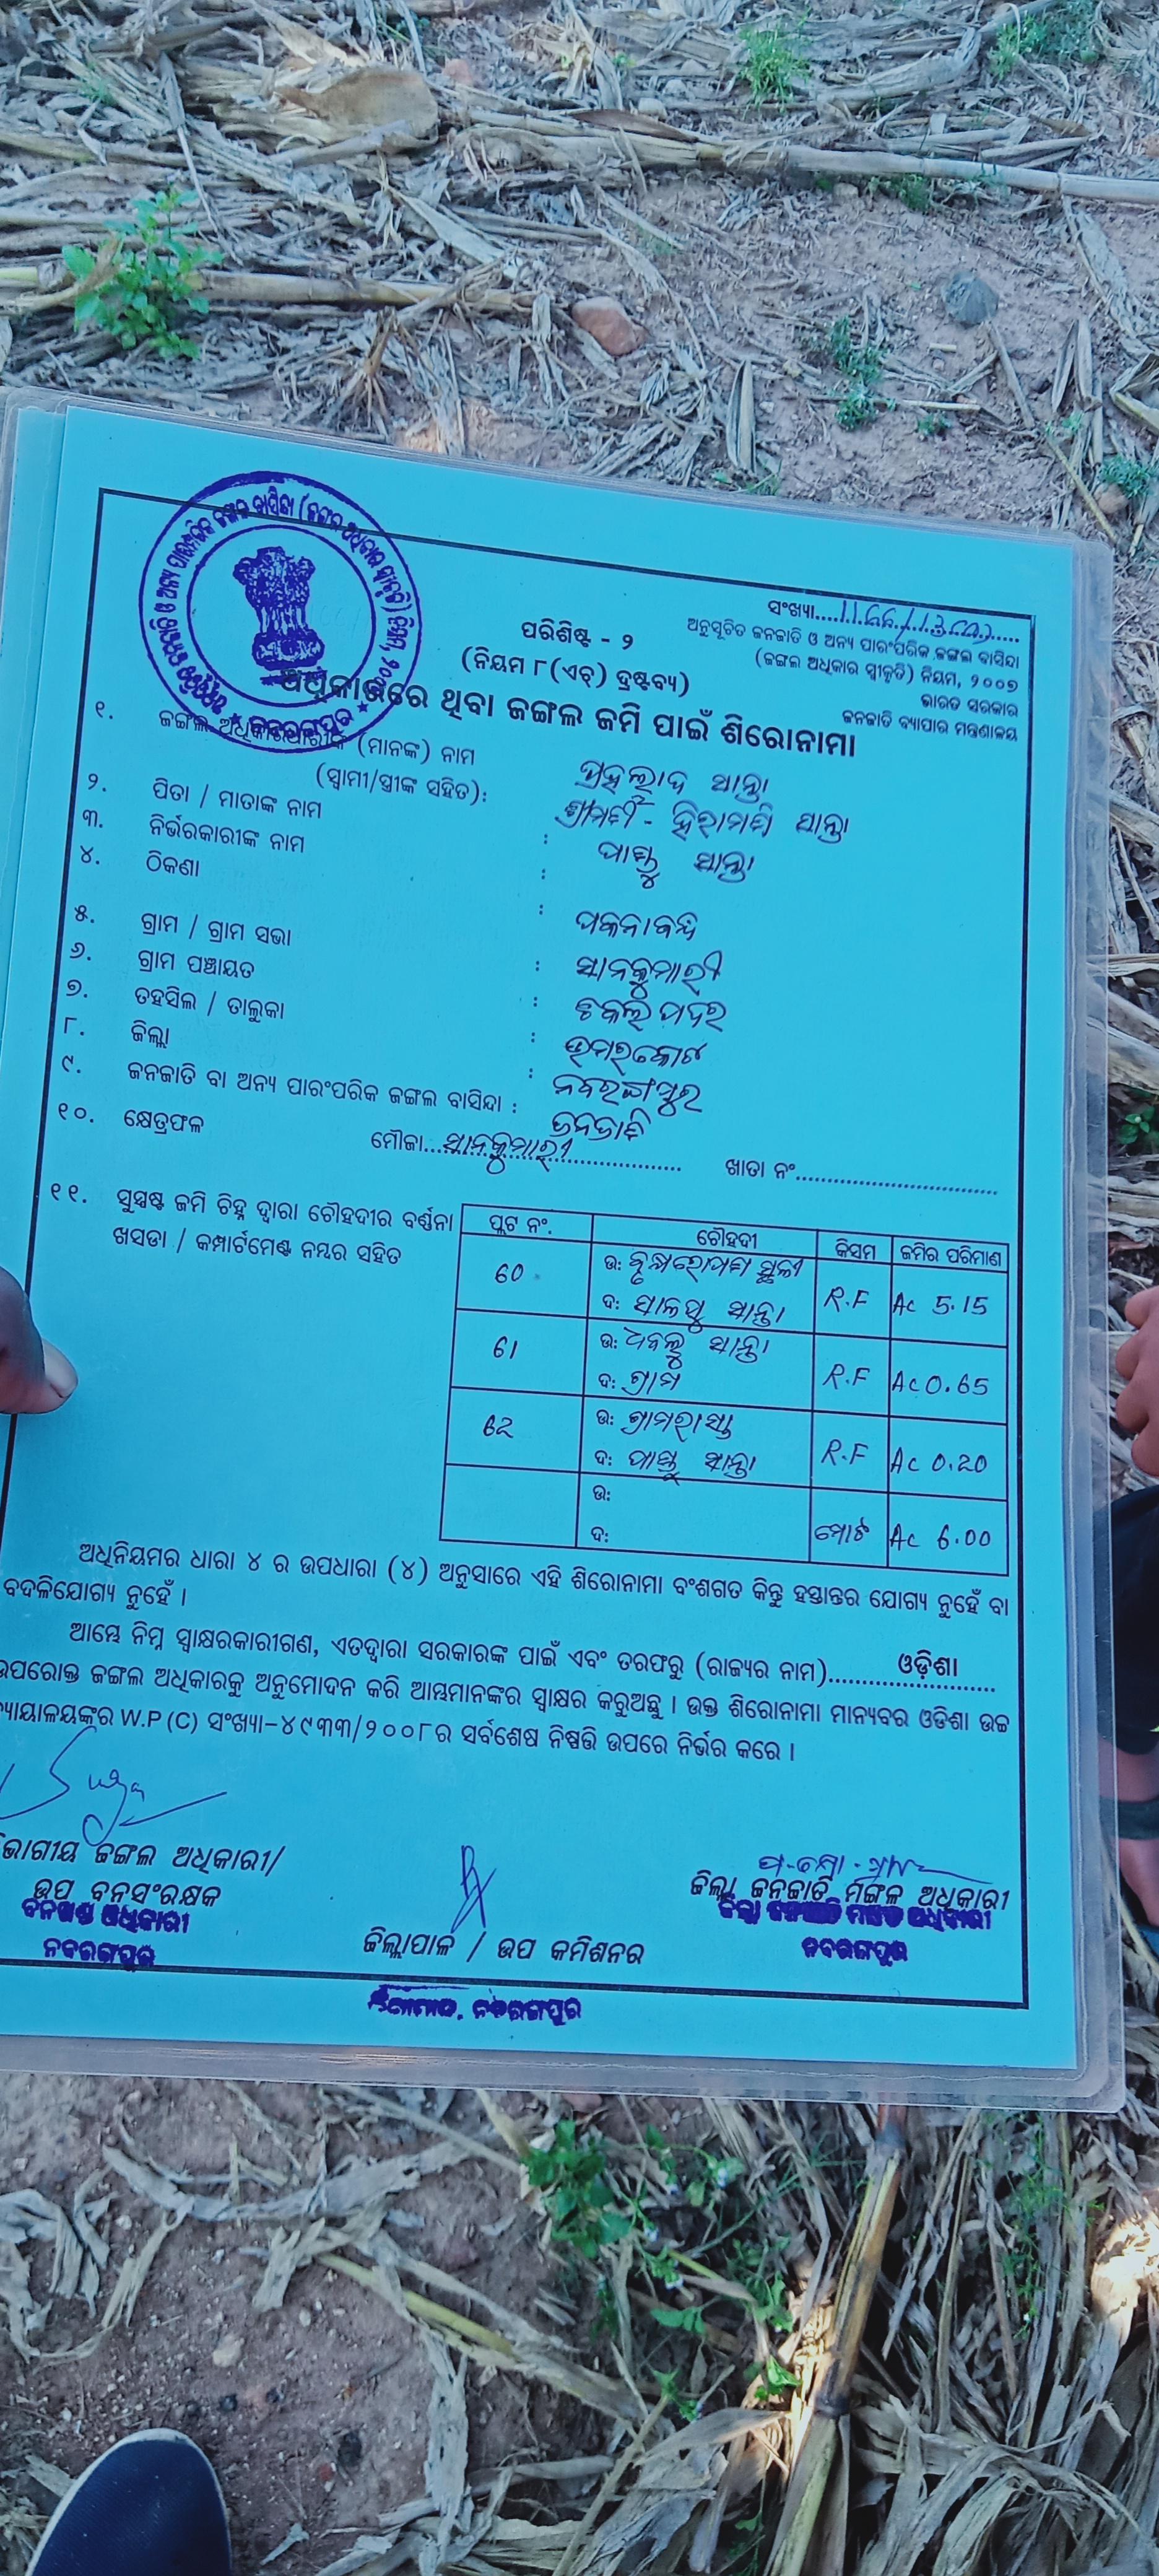 ସଂଖ୍ୟା....1166/13
ଅନୁସୂଚିତ ଜନଜାତି ଓ ଅନ୍ୟ ପାରଂପରିକ ଜଙ୍ଗଲ ବାସିନ୍ଦା
(ଜଙ୍ଗଲ ଅଧିକାର ସ୍ୱୀକୃତି) ନିୟମ, ୨୦୦୭
ଭାରତ ସରକାର
ଜନଜାତି ବ୍ୟାପାର ମନ୍ତ୍ରଣାଳୟ
ପରିଶିଷ୍ଟ - ୨
(ନିୟମ ୮(ଏଚ୍) ଦ୍ରଷ୍ଟବ୍ୟ)
ଅଧିକାରରେ ଥିବା ଜଙ୍ଗଲ ଜମି ପାଇଁ ଶିରୋନାମା
୧. ଜଙ୍ଗଲ ଅଧିକାରଧାରୀଙ୍କ (ମାନଙ୍କ) ନାମ
(ସ୍ୱାମୀ/ସ୍ତ୍ରୀଙ୍କ ସହିତ): ପ୍ରହଲ୍ଲାଦ ସାନ୍ତା
ଶ୍ରୀମତୀ - ହିରାମଣି ସାନ୍ତା
୨. ପିତା / ମାତାଙ୍କ ନାମ : ପାଣ୍ଡୁ ସାନ୍ତା
୩. ନିର୍ଭରକାରୀଙ୍କ ନାମ :
୪. ଠିକଣା :
୫. ଗ୍ରାମ / ଗ୍ରାମ ସଭା : ସାନକୁମାରୀ
୬. ଗ୍ରାମ ପଞ୍ଚାୟତ :
୭. ତହସିଲ / ତାଲୁକା : ଉମରକୋଟ
୮. ଜିଲ୍ଲା : ନବରଙ୍ଗପୁର
୯. ଜନଜାତି ବା ଅନ୍ୟ ପାରଂପରିକ ଜଙ୍ଗଲ ବାସିନ୍ଦା : ଜନଜାତି
୧୦. କ୍ଷେତ୍ରଫଳ ମୌଜା....ସାନକୁମାରୀ.... ଖାତା ନଂ....
୧୧. ସୁସ୍ପଷ୍ଟ ଜମି ଚିହ୍ନ ଦ୍ୱାରା ଚୌହଦୀର ବର୍ଣ୍ଣନା
ଖସଡା / କମ୍ପାର୍ଟମେଣ୍ଟ ନମ୍ବର ସହିତ
ପ୍ଲଟ ନଂ. ଚୌହଦୀ କିସମ ଜମିର ପରିମାଣ
60 ଉ: ବୃକ୍ଷରୋପଣ ସ୍ଥଳୀ R.F Ac 5.15
ଦ: ସାନ୍ତା
61 ଉ: ଧବଲୁ ସାନ୍ତା R.F Ac 0.65
ଦ: ଗ୍ରାମ
62 ଉ: ଗ୍ରାମରାସ୍ତା R.F Ac 0.20
ଦ: ପାଣ୍ଡୁ ସାନ୍ତା
ଉ: ମୋଟ Ac 6.00
ଦ:
ଅଧିନିୟମର ଧାରା ୪ ର ଉପଧାରା (୪) ଅନୁସାରେ ଏହି ଶିରୋନାମା ବଂଶଗତ କିନ୍ତୁ ହସ୍ତାନ୍ତର ଯୋଗ୍ୟ ନୁହେଁ ବା
ବଦଳିଯୋଗ୍ୟ ନୁହେଁ ।
ଆମ୍ଭେ ନିମ୍ନ ସ୍ୱାକ୍ଷରକାରୀଗଣ, ଏତଦ୍ୱାରା ସରକାରଙ୍କ ପାଇଁ ଏବଂ ତରଫରୁ (ରାଜ୍ୟର ନାମ)....ଓଡ଼ିଶା....
ଉପରୋକ୍ତ ଜଙ୍ଗଲ ଅଧିକାରକୁ ଅନୁମୋଦନ କରି ଆମ୍ଭମାନଙ୍କର ସ୍ୱାକ୍ଷର କରୁଅଛୁ । ଉକ୍ତ ଶିରୋନାମା ମାନ୍ୟବର ଓଡିଶା ଉଚ୍ଚ
ନ୍ୟାୟାଳୟଙ୍କର W.P (C) ସଂଖ୍ୟା-୪୯୩୩/୨୦୦୮ର ସର୍ବଶେଷ ନିଷ୍ପତ୍ତି ଉପରେ ନିର୍ଭର କରେ ।
ଭାଗୀୟ ଜଙ୍ଗଲ ଅଧିକାରୀ/
ଉପ ବନସଂରକ୍ଷକ
ବନଖଣ୍ଡ ଅଧିକାରୀ
ନବରଙ୍ଗପୁର
ଜିଲ୍ଲାପାଳ / ଉପ କମିଶନର
ଜିଲ୍ଲାପାଳ, ନବରଙ୍ଗପୁର
ଜିଲ୍ଲା ଜନଜାତି ମଙ୍ଗଳ ଅଧିକାରୀ
ଜିଲ୍ଲା ଜନଜାତି ମଙ୍ଗଳ ଅଧିକାରୀ
ନବରଙ୍ଗପୁର